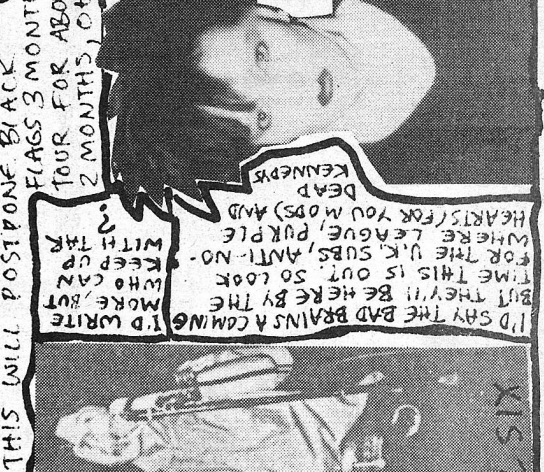 THIS WILL POSTPONE BLACK
FLAGS 3 MONTH
TOUR FOR ABO
2 MONTHS,
I'D SAY THE BAD BRAINS A COMING
BUT THEY'll BE HERE BY THE
TIME THIS IS OUT. SO LOOK
FOR THE U.K. SUBS, ANTI-NO-
WHERE LEAGUE, PURPLE
HEARTS (FOR YOU MODS) AND
DEAD
KENNEDYS
I'D WRITE
MORE, BUT
WHO CAN
KEEP UP
WITH TAR
?
SIX